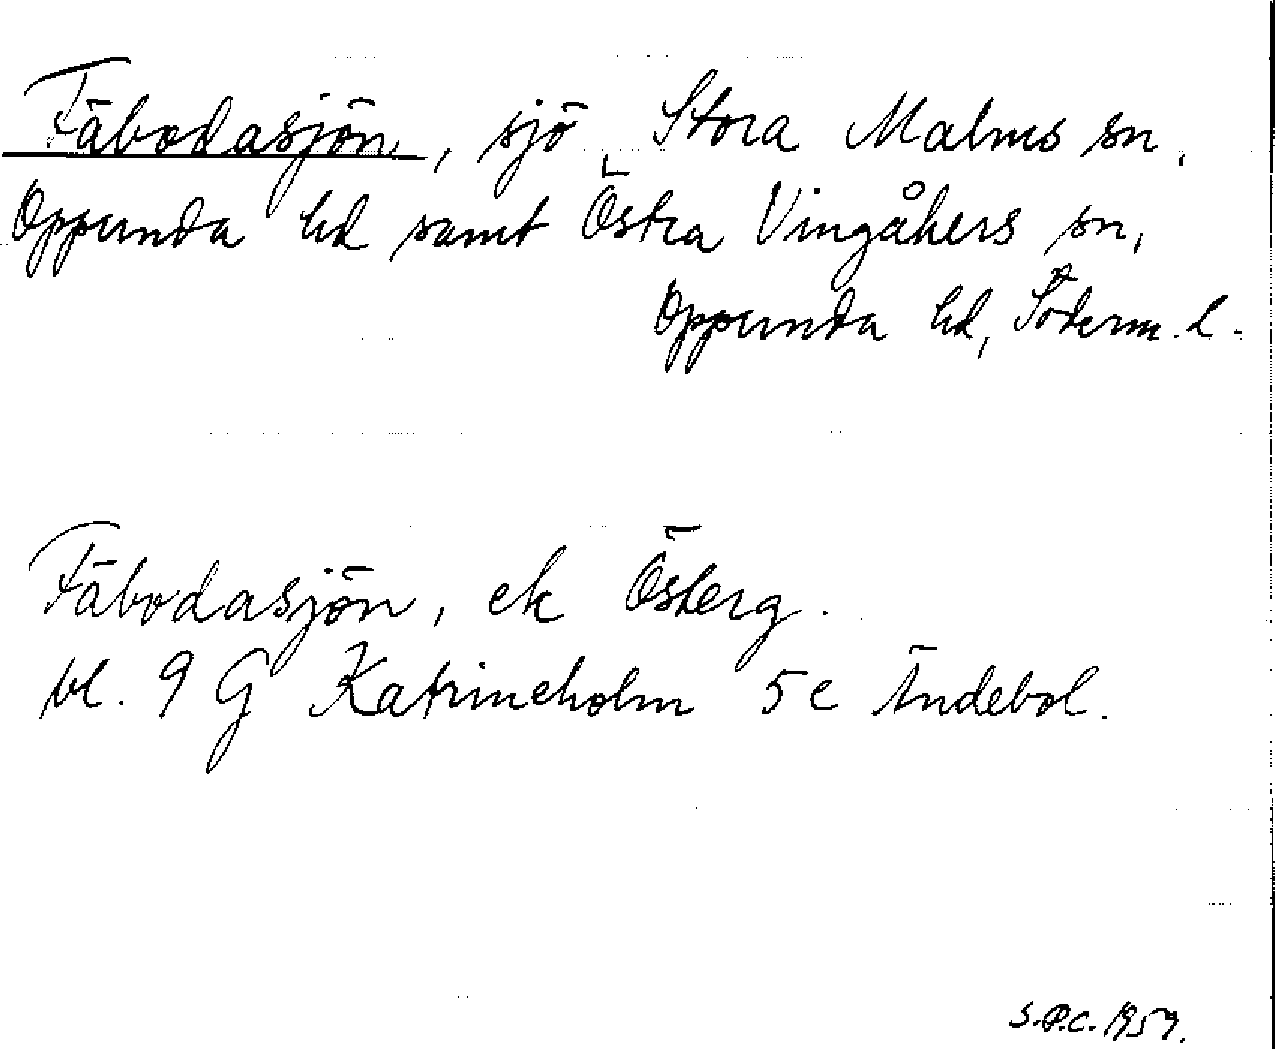 Fäbodasjön, sjö Stora Malms sn,
Oppunda hd samt Östra Vingåkers sn,
Oppunda hd, Söderm. l.
Fäbodasjön, ek Österg.
bl. 9 G Katrineholm 5 c Ändebol.
S.P.C. 1959.